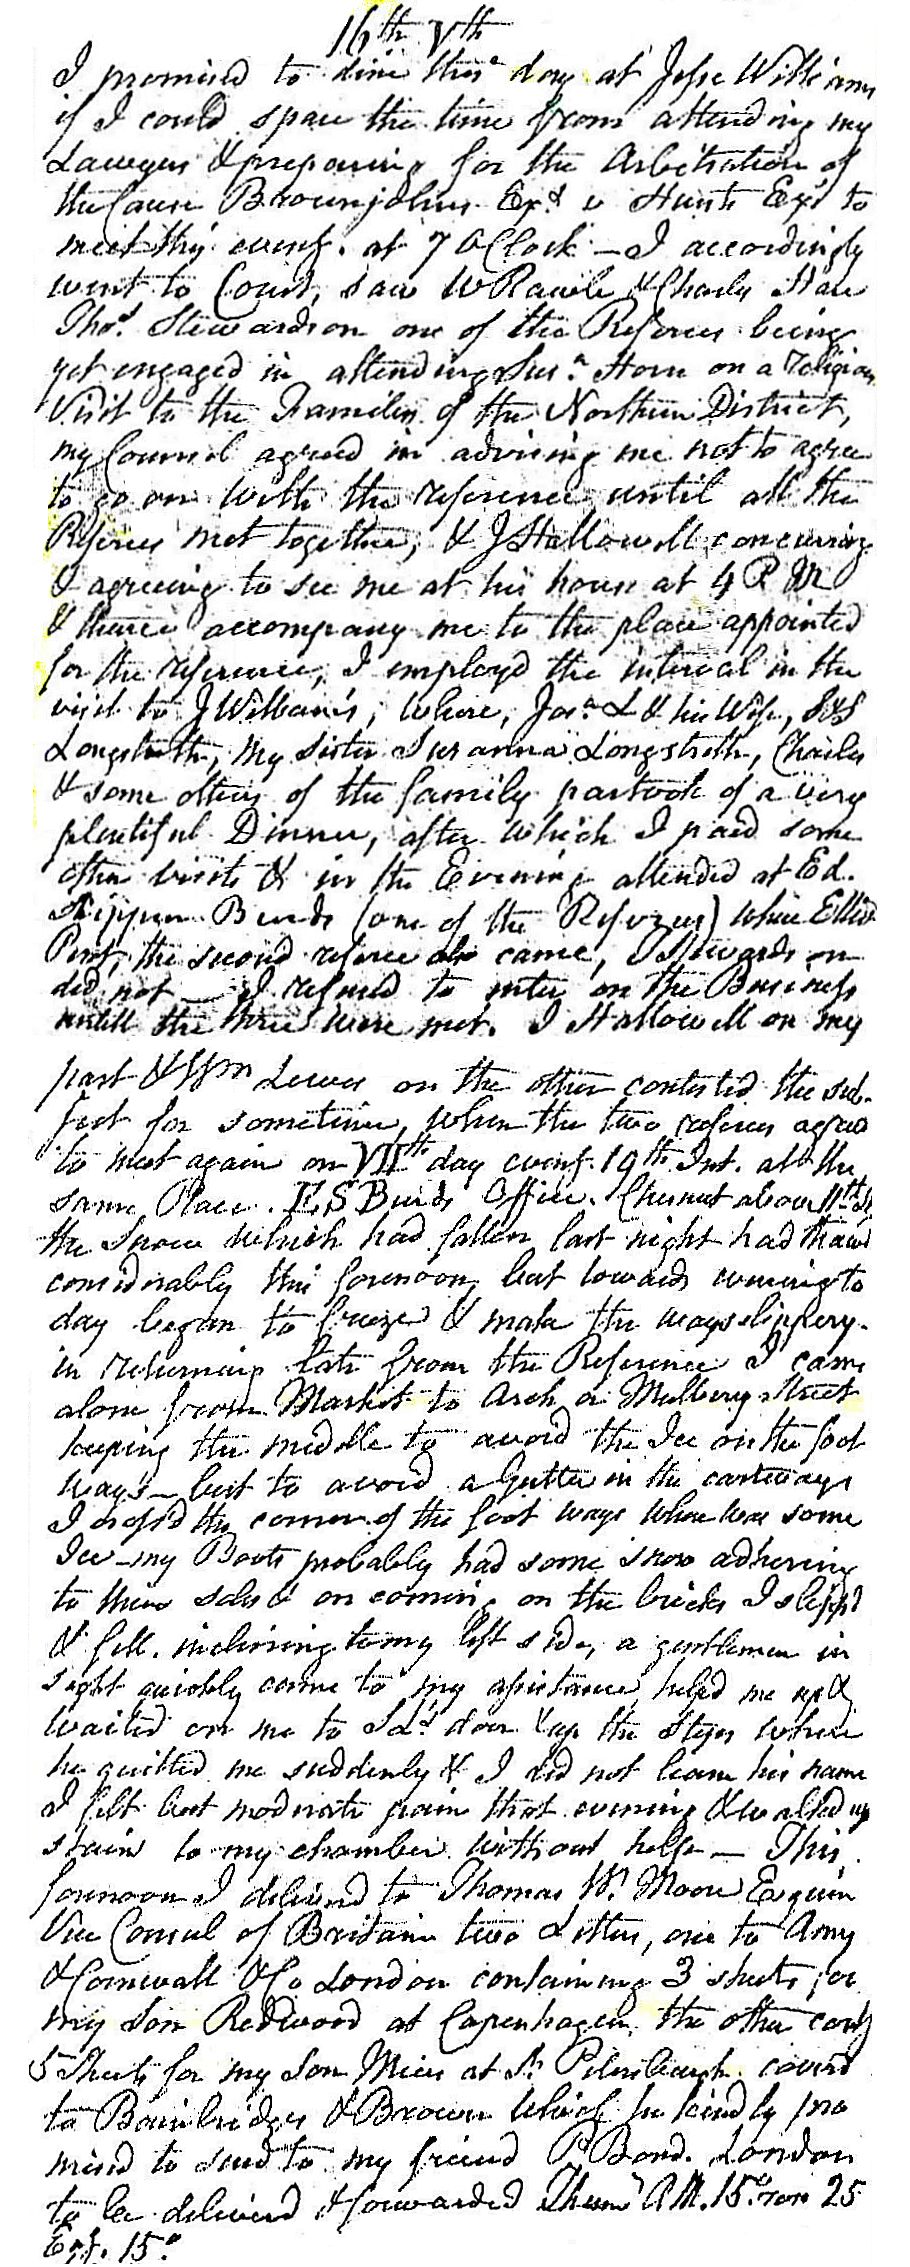 16th Vth
I promised to dine this day at Jesse Williams
if I could spare the time from attending my
Lawyers & preparing for the Arbitration of
the Cause Brownjohns Exrs v Hunts Exrs to
meet this eveng. at 7 OClock — I accordingly
went to Court, saw W Rawle & Charles Hare
Thos. Stewardson one of the Referees being
yet engaged in attending Susa. Horn on a religious
Visit to the Families of the Northern District,
my Council agreed in advising me not to agree
to go on with the reference until all the
Referees met together, & J Hallowell concurring
& agreeing to see me at his house at 4 P M
& thence accompany me to the place appointed
for the reference, I employd the interval in the
visit to J William's, where, Josa. L & his Wife, S & S
Longstreth, my Sister Susanna Longstreth, Charles
& some others of the family partook of a very
plentiful Dinner, after which I paid some
other visits & in the Evening attended at Ed.
Shippen Burds (one of the Referees) where Ellis
the second referee also came, Stewardson
did not — I refused to enter on the Business
untill the three were met. J Hallowell on my
part & Wm Lewis on the other contested the sub-
ject for sometime, when the two referees agreed
to meet again on VIIth day eveng. 19th Inst. at the
same Place. E S Burds Office. Chesnut above 11th St
the Snow which had fallen last night had thawd
considerably this forenoon, but towards evening to
day began to freeze & make the ways slippery.
in returning late from the Reference I came
alone from Market to Arch or Mulberry street
keeping the middle to avoid the Ice on the foot
ways — but to avoid a Gutter in the cartways
I cross'd the corner of the foot ways where was some
Ice — my Boots probably had some snow adhering
to their soles & on coming on the bricks I slipp'd
& fell. inclining to my left side, a gentleman in
sight quickly came to my assistance, helpd me up &
waited on me to door & up the Steps where
he quitted me suddenly & I did not learn his name
I felt but moderate pain that evening & walked up
stairs to my chamber without help — This
forenoon I deliverd to Thomas W. Moore Esquire
Vice Consul of Britain two Letters, one to Amy
& Cornwall & Co London containing 3 sheets for
my Son Redwood at Copenhagen, the other contg
5 Sheets for my Son Miers at St. Petersburgh coverd
to Bainbridges & Brown which he kindly pro
mised to send to my friend P. Bond. London
to be deliverd & forwarded Therm. A M. 15° noon 25
Eg. 15°